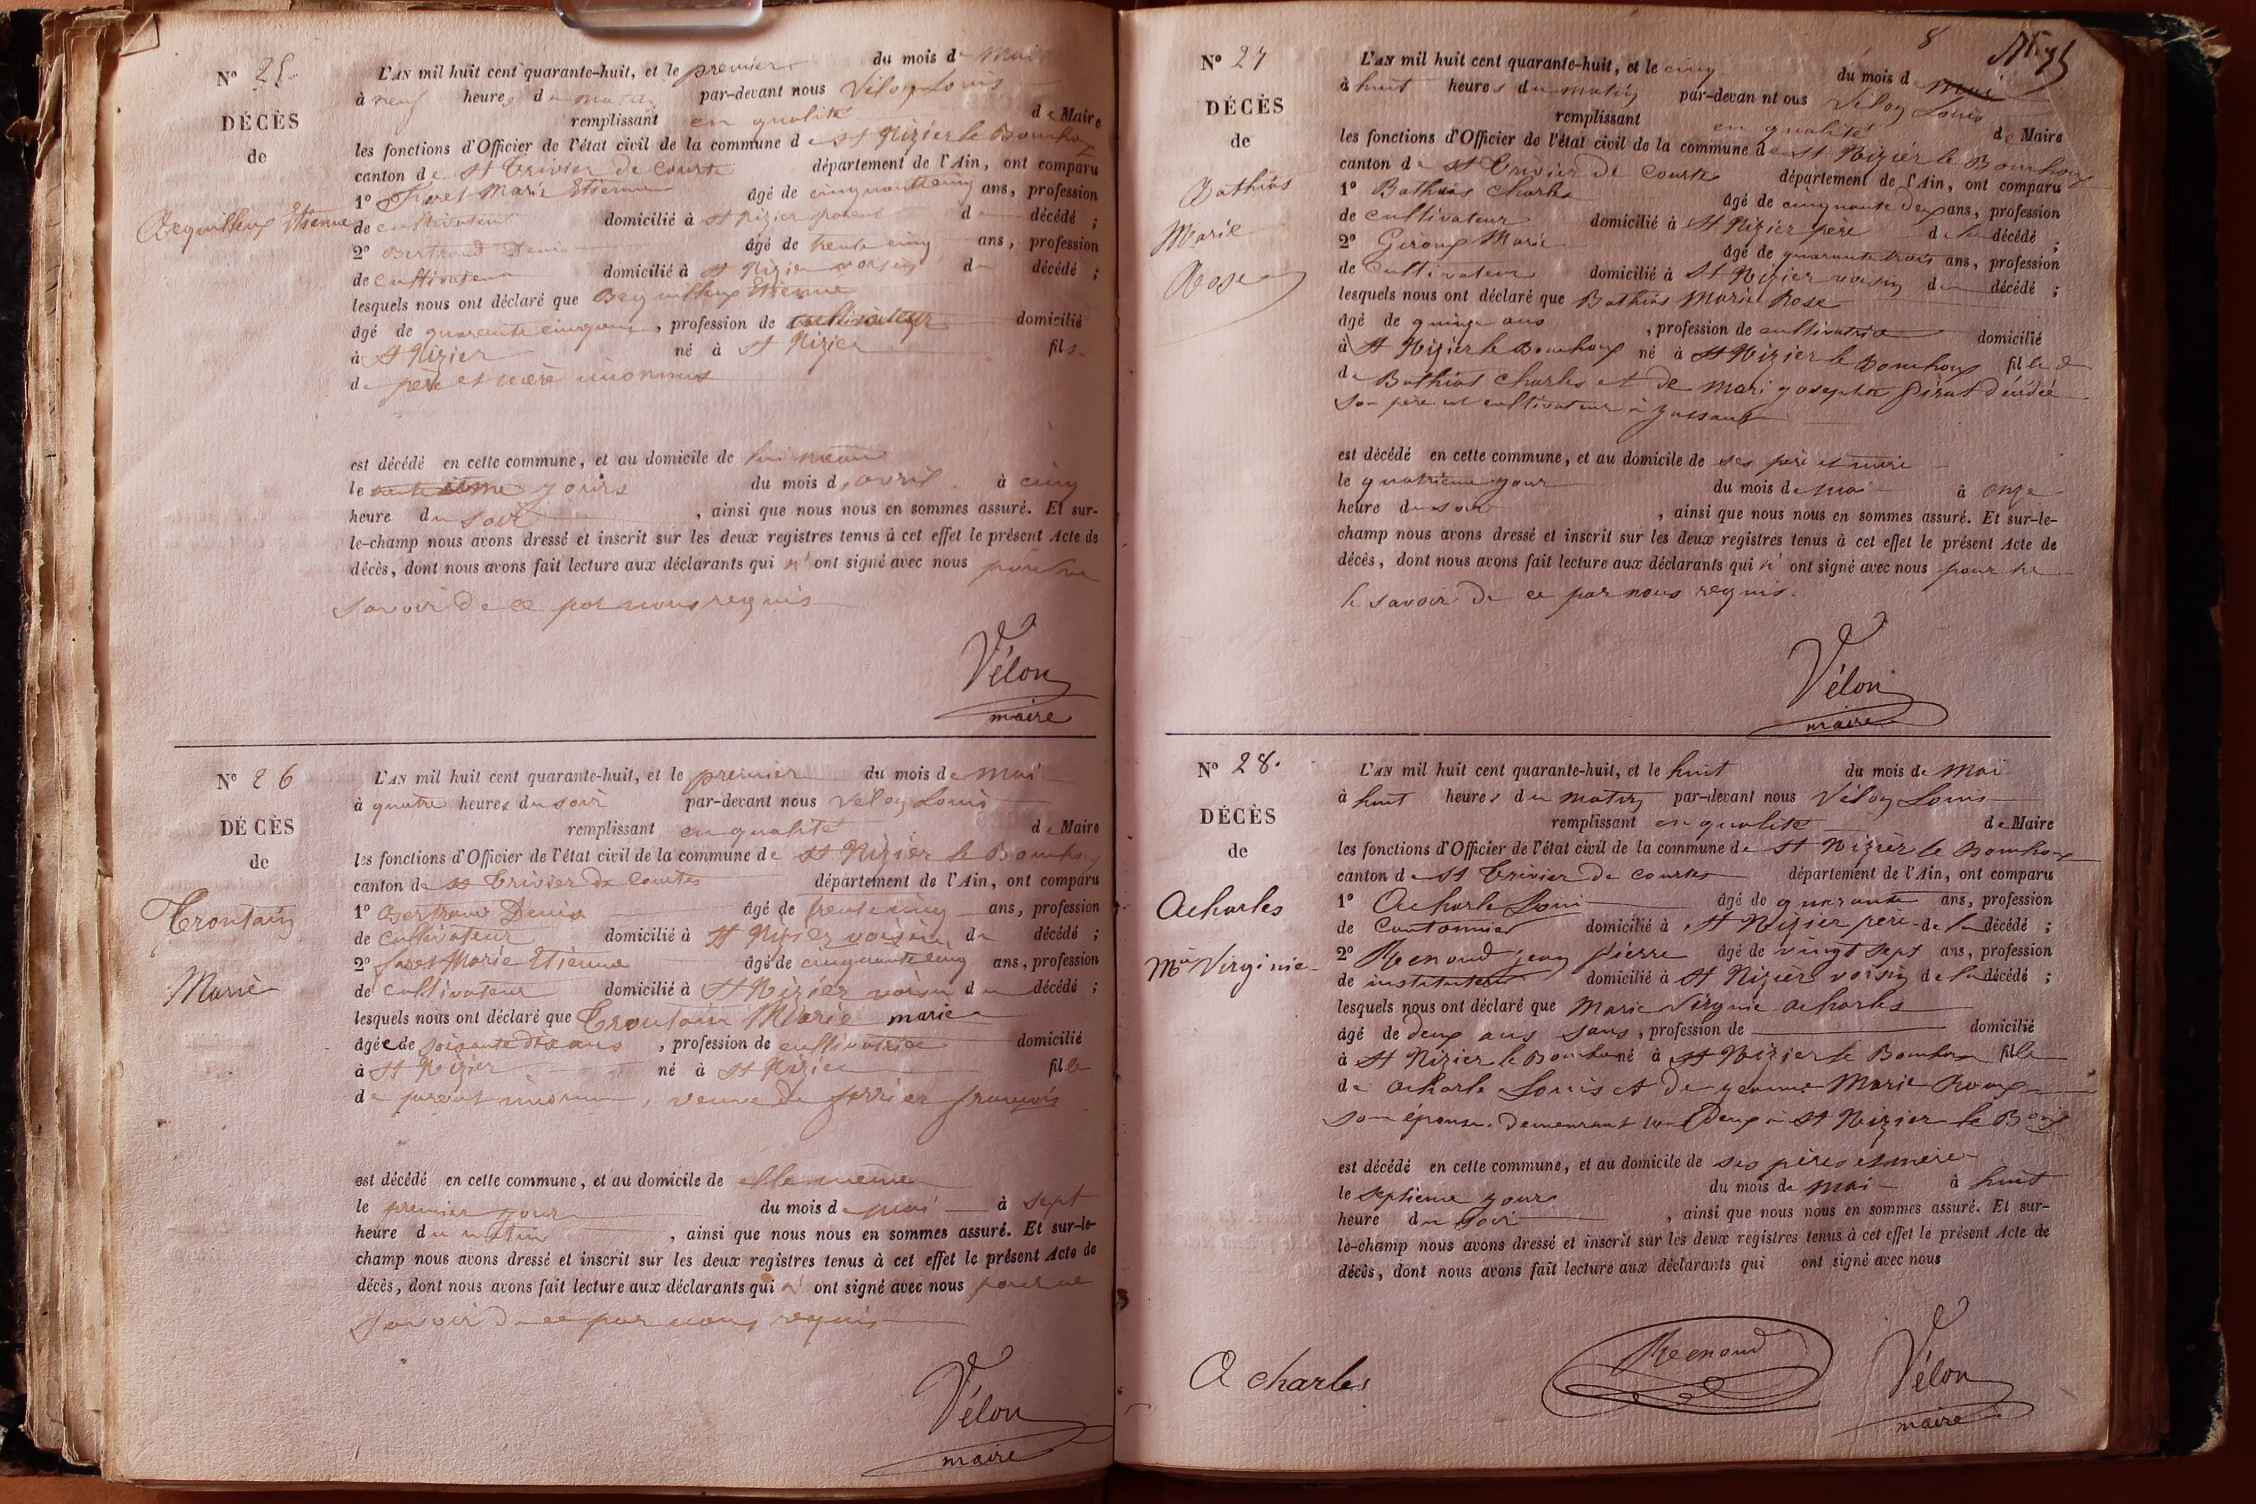 N° 25
DÉCÈS
de
Etienne
L'AN mil huit cent quarante-huit, et le premier du mois d mai
à neuf heures du matin par-devant nous Vélon Louis
remplissant en qualité de Maire
les fonctions d'Officier de l'état civil de la commune de St Nizier le Bouchoux
canton de St Trivier de Courtes département de l'Ain, ont comparu
1° Marie Etienne âgé de cinquante cinq ans, profession
de cultivateur domicilié à St Nizier parent du décédé ;
2° Bertrand Denis âgé de trente cinq ans, profession
de cultivateur domicilié à St Nizier voisin du décédé ;
lesquels nous ont déclaré que Etienne
âgé de quarante cinq ans, profession de cultivateur domicilié
à St Nizier né à St Nizier fils
de père et mère
est décédé en cette commune, et au domicile de lui même
le jours du mois d avril à cinq
heure du soir, ainsi que nous nous en sommes assuré. Et sur-
le-champ nous avons dressé et inscrit sur les deux registres tenus à cet effet le présent Acte de
décès, dont nous avons fait lecture aux déclarants qui n'ont signé avec nous pour ne
savoir de ce par nous requis
Vélon
maire
N° 26
DÉCÈS
de
Trontain
Marie
L'AN mil huit cent quarante-huit, et le premier du mois de mai
à quatre heures du soir par-devant nous Vélon Louis
remplissant en qualité de Maire
les fonctions d'Officier de l'état civil de la commune de St Nizier le Bouchoux
canton de St Trivier de Courtes département de l'Ain, ont comparu
1° Bertrand Denis âgé de trente cinq ans, profession
de cultivateur domicilié à St Nizier voisin du décédé ;
2° Marie Etienne âgé de cinquante cinq ans, profession
de cultivateur domicilié à St Nizier voisin du décédé ;
lesquels nous ont déclaré que Trontain Marie marie
âgée de soixante dix ans, profession de cultivatrice domicilié
à St Nizier né à St Nizier fille
de parent, veuve de ferrier françois
est décédé en cette commune, et au domicile de elle même
le premier jour du mois de mai à sept
heure du matin, ainsi que nous nous en sommes assuré. Et sur-le-
champ nous avons dressé et inscrit sur les deux registres tenus à cet effet le présent Acte de
décès, dont nous avons fait lecture aux déclarants qui n'ont signé avec nous pour ne
savoir de ce par nous requis
Vélon
maire
8
N° 27
DÉCÈS
de
Bathias
Marie
Rose
L'AN mil huit cent quarante-huit, et le cinq du mois de Mai
à huit heures du matin par-devan nt ous Vélon Louis
remplissant en qualité de Maire
les fonctions d'Officier de l'état civil de la commune de St Nizier le Bouchoux
canton de St Trivier de Courtes département de l'Ain, ont comparu
1° Bathias Charles âgé de cinquante deux ans, profession
de cultivateur domicilié à St Nizier père de la décédé ;
2° Giroux Marie âgé de quarante trois ans, profession
de cultivateur domicilié à St Nizier voisin du décédé ;
lesquels nous ont déclaré que Bathias Marie Rose
âgé de quinze ans, profession de cultivatrice domicilié
à St Nizier le Bouchoux né à St Nizier le Bouchoux fille d
de Bathias Charles et de Mari josephte Pirat décédée
son père est cultivateur à
est décédé en cette commune, et au domicile de ses père et mère
le quatrième jour du mois de mai à onze
heure du soir, ainsi que nous nous en sommes assuré. Et sur-le-
champ nous avons dressé et inscrit sur les deux registres tenus à cet effet le présent Acte de
décès, dont nous avons fait lecture aux déclarants qui n'ont signé avec nous pour ne
le savoir de ce par nous requis.
Vélon
maire
N° 28.
DÉCÈS
de
Acharles
Mie Virginie
L'AN mil huit cent quarante-huit, et le huit du mois de Mai
à huit heures du matin par-devant nous Vélon Louis
remplissant en qualité de Maire
les fonctions d'Officier de l'état civil de la commune de St Nizier le Bouchoux
canton de St Trivier de Courtes département de l'Ain, ont comparu
1° Acharle Loui âgé de quarante ans, profession
de Cantonnier domicilié à St Nizier père de la décédé ;
2° Renoud jean pierre âgé de vingt sept ans, profession
de instituteur domicilié à St Nizier voisin de la décédé ;
lesquels nous ont déclaré que Marie Virginie Acharles
âgé de deux ans sans, profession de domicilié
à St Nizier le Bouchoux né à St Nizier le Bouchoux fille
de Acharle Louis et de jeanne Marie Roux
son épouse. Demeurant tous Deux à St Nizier le Boux
est décédé en cette commune, et au domicile de ses pères et mère
le septième jour du mois de mai à huit
heure du soir, ainsi que nous nous en sommes assuré. Et sur-
le-champ nous avons dressé et inscrit sur les deux registres tenus à cet effet le présent Acte de
décès, dont nous avons fait lecture aux déclarants qui ont signé avec nous
A charles
Renoud
Vélon
maire